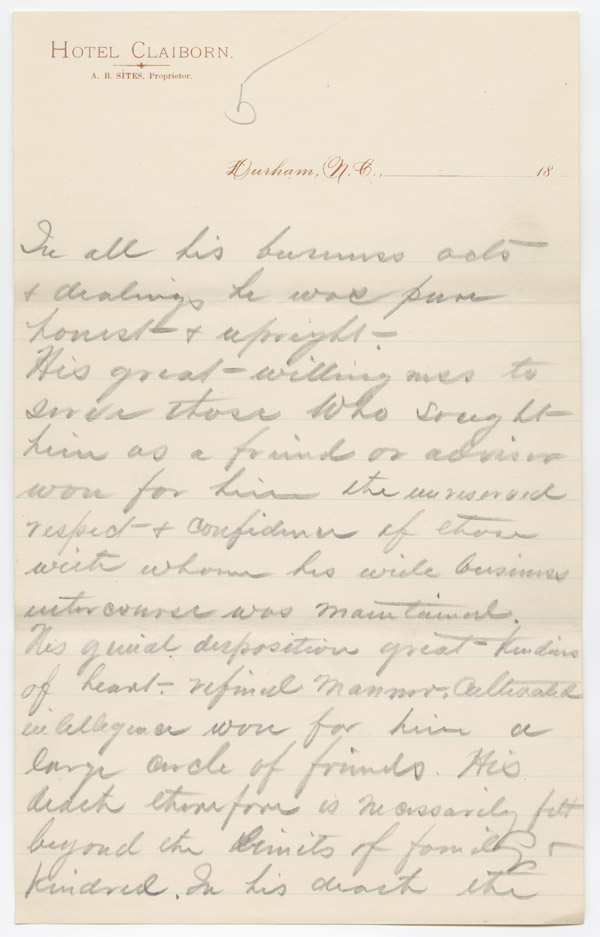 HOTEL CLAIBORN.
A. B. SITES, Proprietor.
5
Durham, N. C., 18
In all his business acts
& dealings he was pure
honest & upright.
His great willingness to
serve those Who sought
him as a friend or advisor
won for him the unreserved
respect & confidence of those
with whom his wide business
intercourse was maintained.
His genial disposition great kindness
of heart. refined manner. Cultivated
intelligence won for him a
large circle of friends. His
death therefore is necessarily felt
beyond the limits of family &
kindred. In his death the